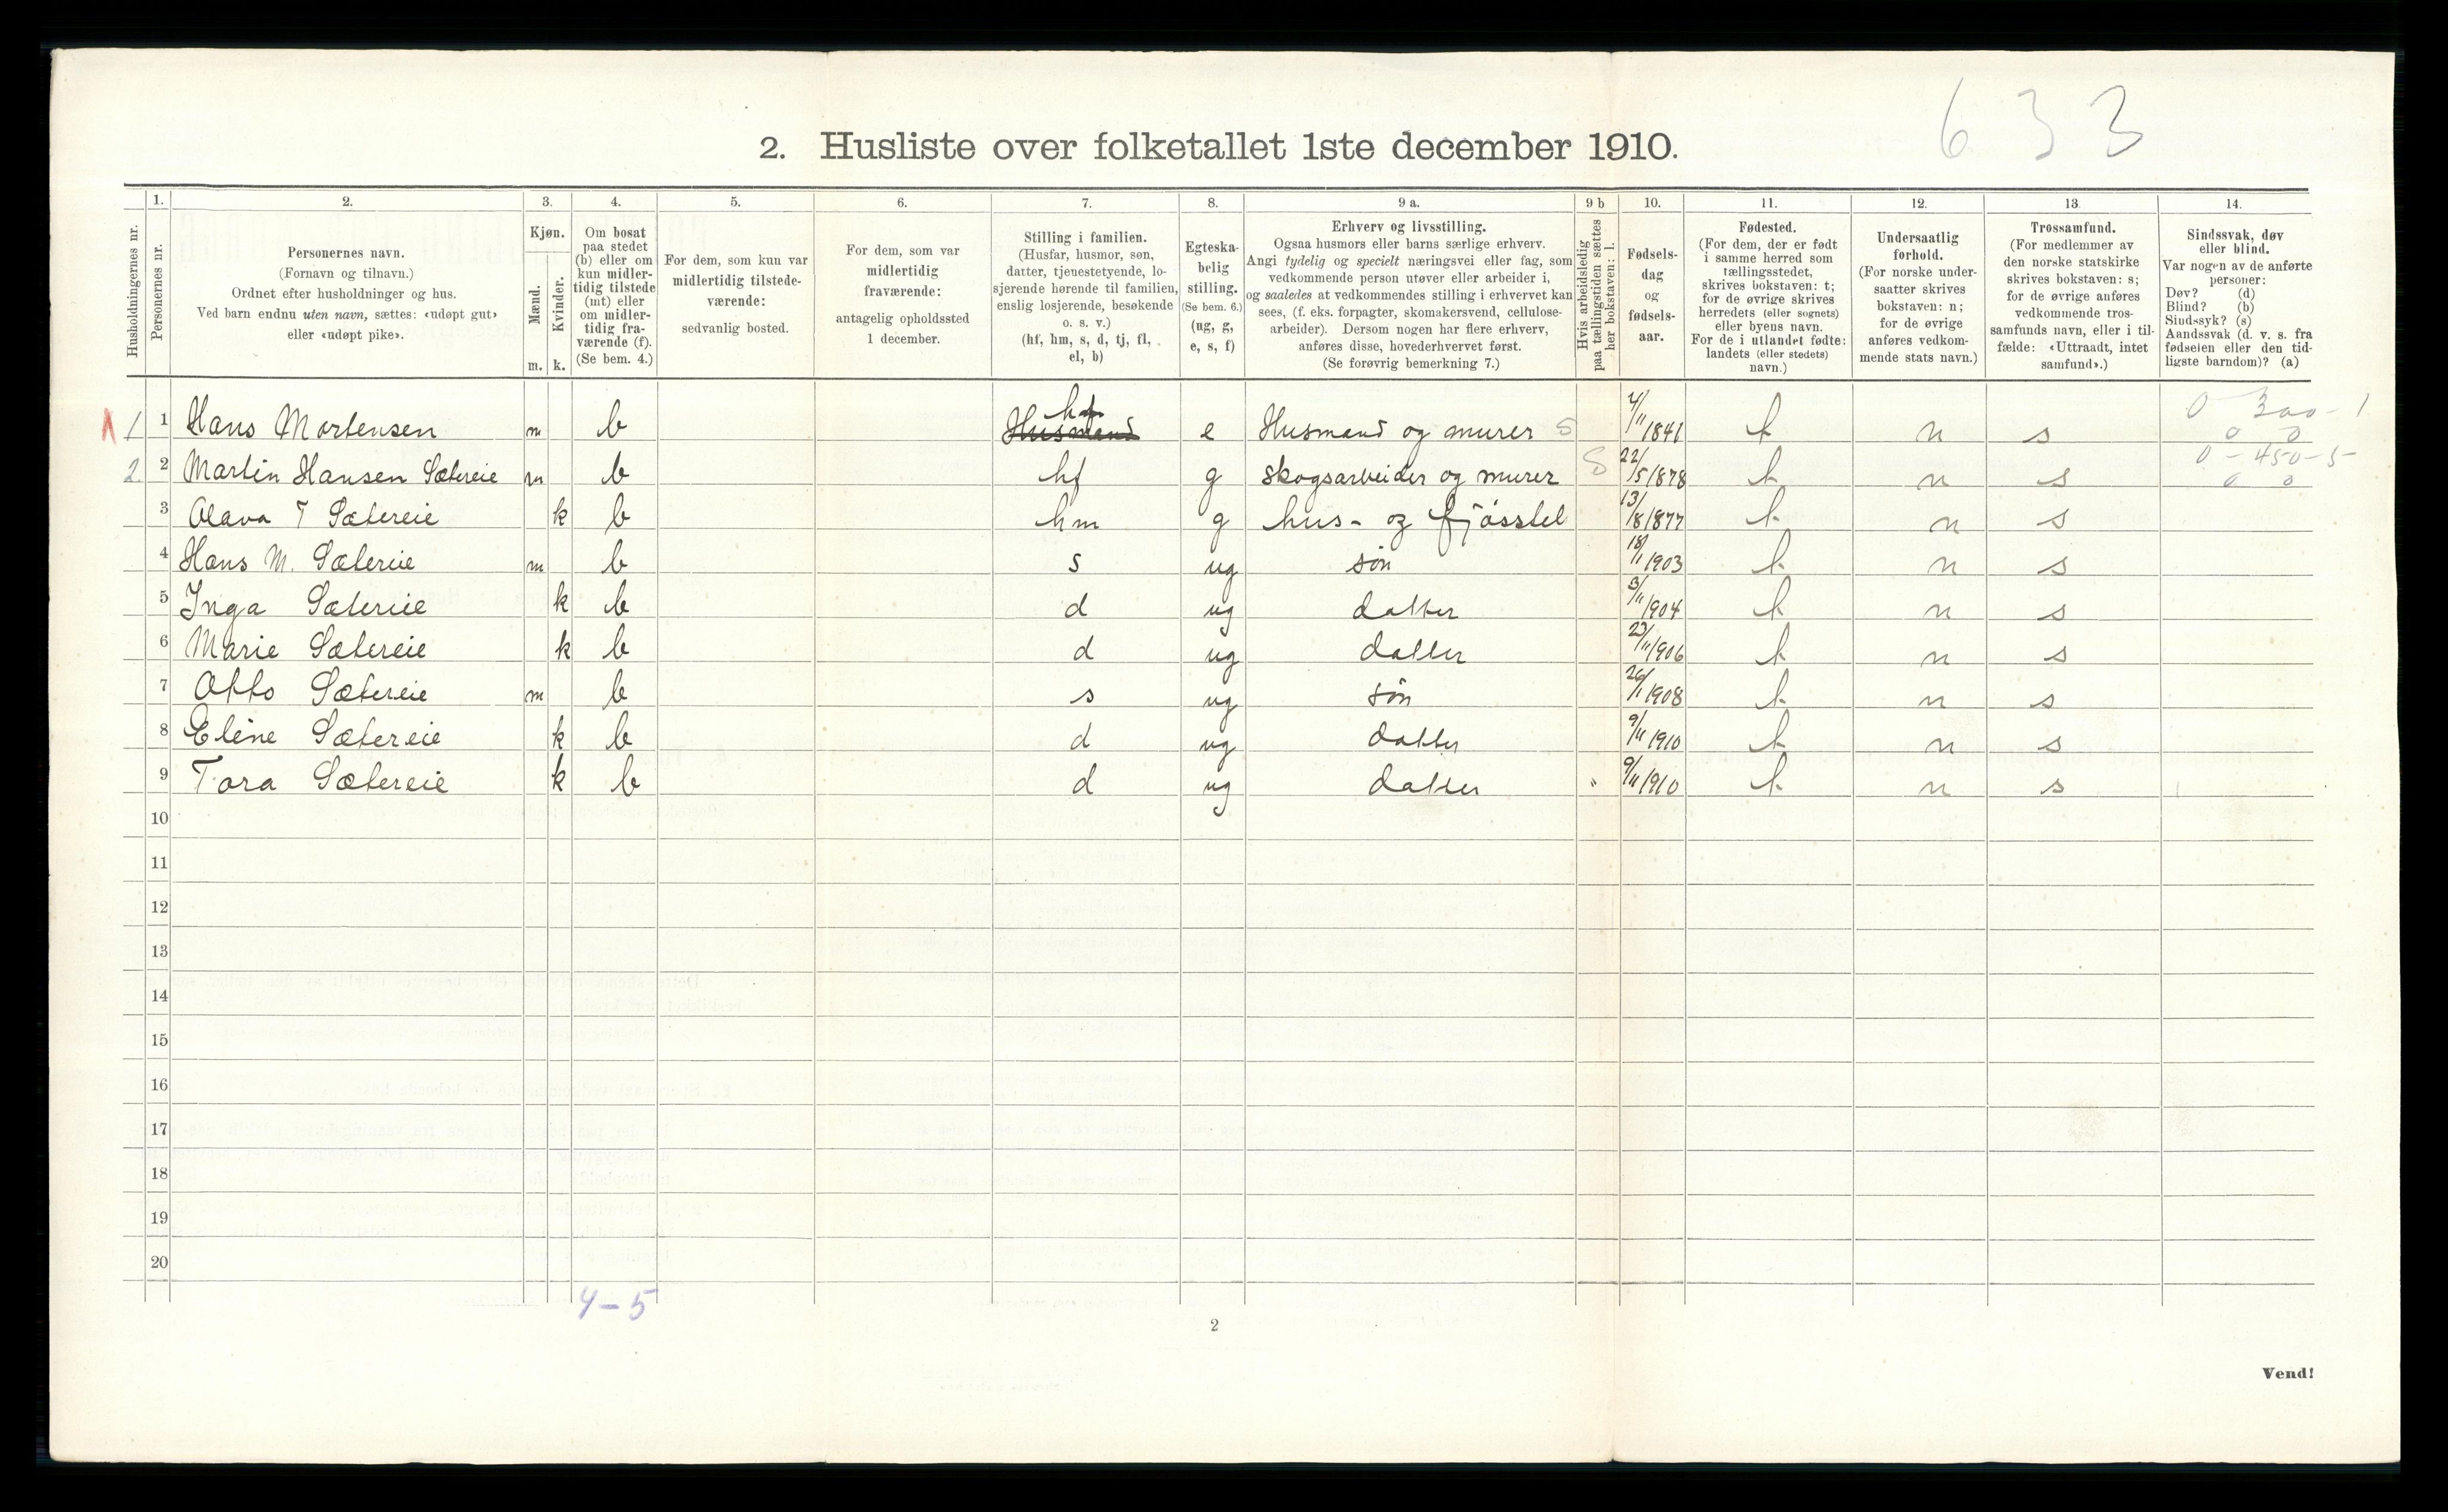 633
2. Husliste over folketallet 1ste december 1910.
Husholdningernes nr.
1.
Personernes nr.
2.
Personernes navn.
(Fornavn og tilnavn.)
Ordnet efter husholdninger og hus.
Ved barn endnu uten navn, sættes: «udøpt gut»
eller «udøpt pike».
3.
Kjøn.
Mænd.
Kvinder.
m. k.
4.
Om bosat
paa stedet
(b) eller om
kun midler-
tidig tilstede
(mt) eller
om midler-
tidig fra-
værende (f).
(Se bem. 4.)
5.
For dem, som kun var
midlertidig tilstede-
værende:
sedvanlig bosted.
6.
For dem, som var
midlertidig
fraværende:
antagelig opholdssted
1 december.
7.
Stilling i familien.
(Husfar, husmor, søn,
datter, tjenestetyende, lo-
sjerende hørende til familien,
enslig losjerende, besøkende
o. s. v.)
(hf, hm, s, d, tj, fl,
el, b)
8.
Egteska-
belig
stilling.
(Se bem. 6.)
(ug, g,
e, s, f)
9 a.
Erhverv og livsstilling.
Ogsaa husmors eller barns særlige erhverv.
Angi tydelig og specielt næringsvei eller fag, som
vedkommende person utøver eller arbeider i,
og saaledes at vedkommendes stilling i erhvervet kan
sees, (f. eks. forpagter, skomakersvend, cellulose-
arbeider). Dersom nogen har flere erhverv,
anføres disse, hovederhvervet først.
(Se forøvrig bemerkning 7.)
9 b
Hvis arbeidsledig
paa tællingstiden sættes
her bokstaven: l.
10.
Fødsels-
dag
og
fødsels-
aar.
11.
Fødested.
(For dem, der er født
i samme herred som
tællingsstedet,
skrives bokstaven: t;
for de øvrige skrives
herredets (eller sognets)
eller byens navn.
For de i utlandet fødte:
landets (eller stedets)
navn.)
12.
Undersaatlig
forhold.
(For norske under-
saatter skrives
bokstaven: n;
for de øvrige
anføres vedkom-
mende stats navn.)
13.
Trossamfund.
(For medlemmer av
den norske statskirke
skrives bokstaven: s;
for de øvrige anføres
vedkommende tros-
samfunds navn, eller i til-
fælde: «Uttraadt, intet
samfund».)
14.
Sindssvak, døv
eller blind.
Var nogen av de anførte
personer:
Døv? (d)
Blind? (b)
Sindssyk? (s)
Aandssvak (d. v. s. fra
fødselen eller den tid-
ligste barndom)? (a)
1 1 Hans Mortensen m b Husmand hf e Husmand og murer S 4/11 1841 t n s 0 300-1 0 0
2 2 Martin Hansen Sætereie m b hf g skogsarbeider og murer S 22/5 1878 t n s 0-450-5 0 0
3 Olava T Sætereie k b hm g hus- og fjøsstel 13/8 1877 t n s
4 Hans M. Sætereie m b s ug søn 18/1 1903 t n s
5 Inga Sætereie k b d ug datter 3/11 1904 t n s
6 Marie Sætereie k b d ug datter 23/11 1906 t n s
7 Otto Sætereie m b s ug søn 26/1 1908 t n s
8 Eline Sætereie k b d ug datter 9/11 1910 t n s
9 Tora Sætereie k b d ug datter " 9/11 1910 t n s
10
11
12
13
14
15
16
17
18
19
20
4-5
2
Vend!